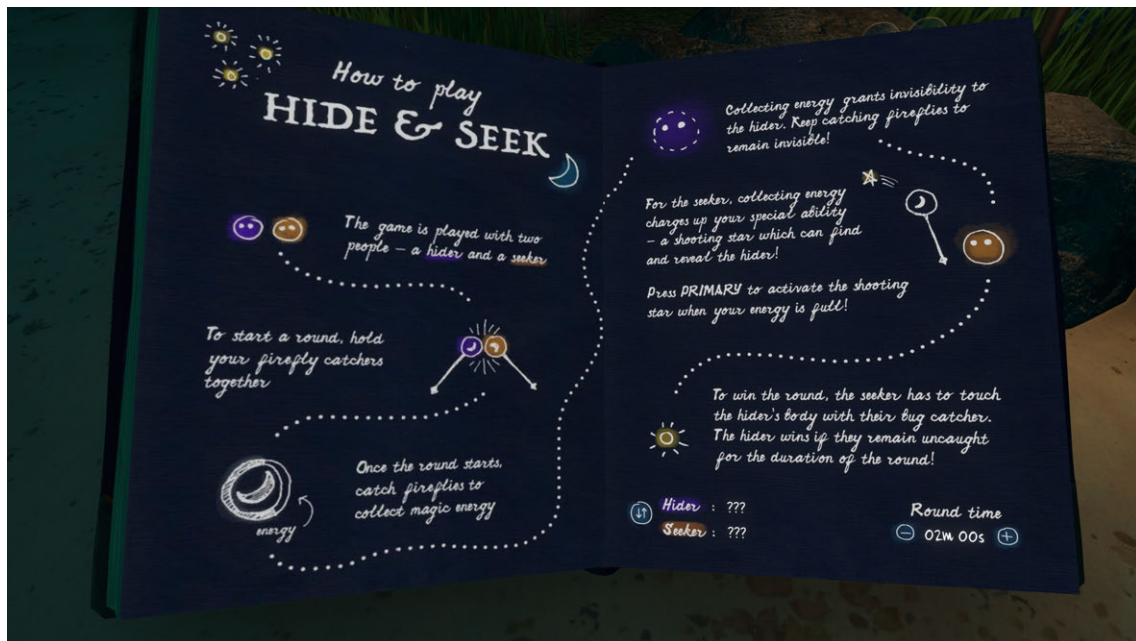 How to play
HIDE & SEEK
The game is played with two
people – a hider and a seeker
To start a round, hold
your firefly catchers
together
Once the round starts,
catch fireflies to
collect magic energy
energy
Collecting energy grants invisibility to
the hider. Keep catching fireflies to
remain invisible!
For the seeker, collecting energy
charges up your special ability
– a shooting star which can find
and reveal the hider!
Press PRIMARY to activate the shooting
star when your energy is full!
To win the round, the seeker has to touch
the hider's body with their bug catcher.
The hider wins if they remain uncaught
for the duration of the round!
Hider : ???
Seeker : ???
Round time
02m 00s